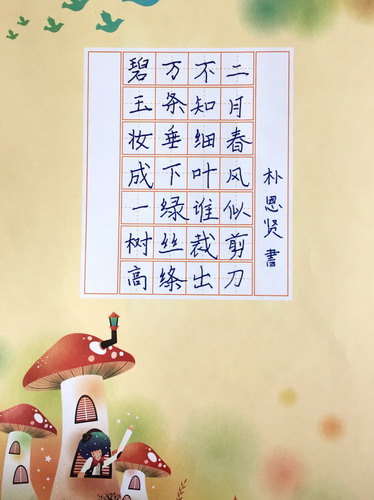 碧玉妆成一树高
万条垂下绿丝绦
不知细叶谁裁出
二月春风似剪刀
朴恩贤書